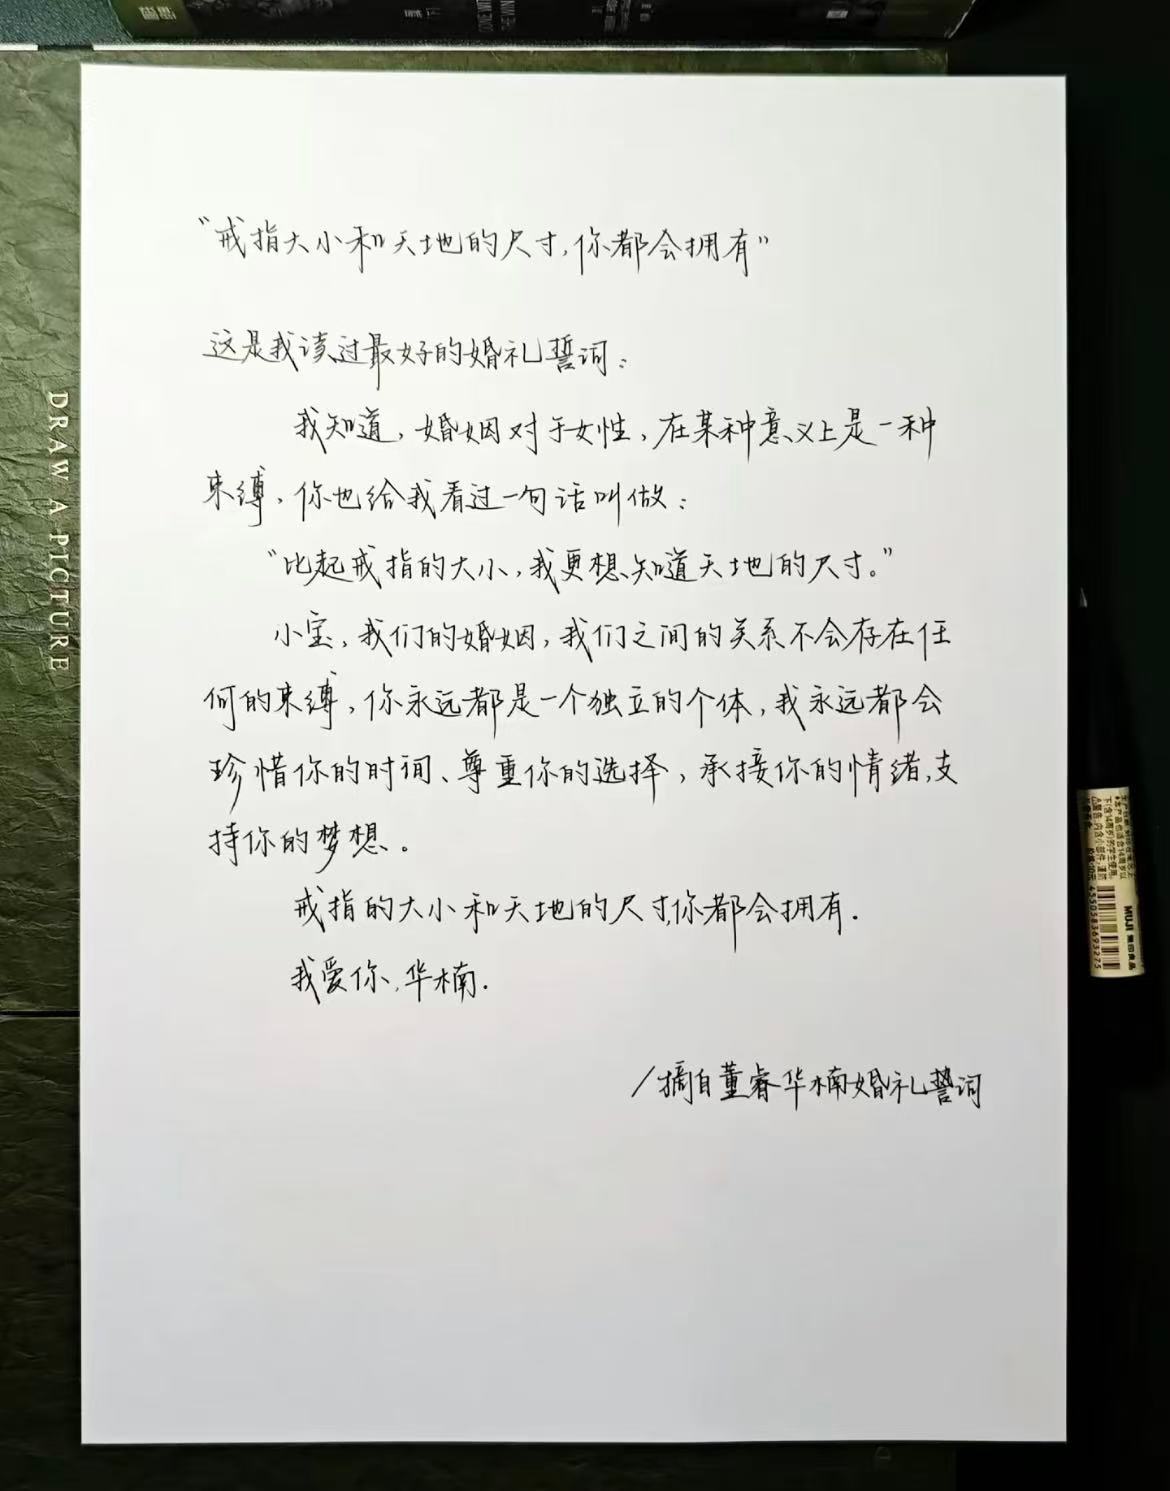 “戒指大小和天地的尺寸,你都会拥有”
这是我读过最好的婚礼誓词:
我知道,婚姻对于女性,在某种意义上是一种
束缚,你也给我看过一句话叫做:
“比起戒指的大小,我更想知道天地的尺寸。”
小宝,我们的婚姻,我们之间的关系不会存在任
何的束缚,你永远都是一个独立的个体,我永远都会
珍惜你的时间、尊重你的选择,承接你的情绪,支
持你的梦想。
戒指的大小和天地的尺寸,你都会拥有.
我爱你,华楠.
/摘自董睿华楠婚礼誓词
DRAW A PICTURE
MUJI 無印良品
4550583693275